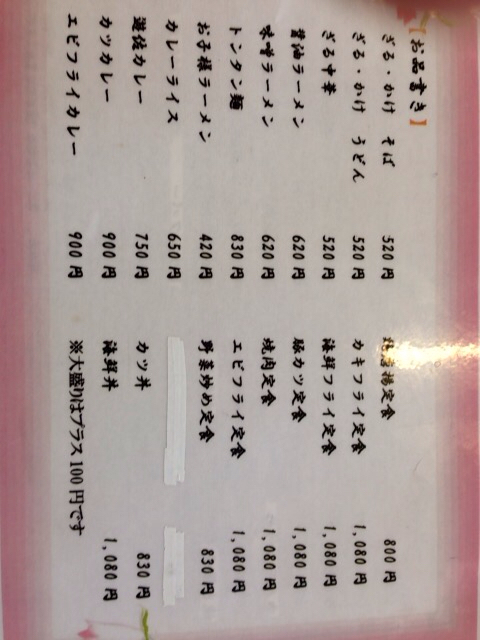 【お品書き】
ざる・かけ そば 520円
ざる・かけ うどん 520円
ざる中華 520円
醤油ラーメン 620円
味噌ラーメン 620円
トンタン麺 830円
お子様ラーメン 420円
カレーライス 650円
遊佐カレー 750円
カツカレー 900円
エビフライカレー 900円
揚定食 800円
カキフライ定食 1,080円
海鮮フライ定食 1,080円
豚カツ定食 1,080円
焼肉定食 1,080円
エビフライ定食 1,080円
野菜炒め定食 830円
カツ丼 830円
海鮮丼 1,080円
※大盛りはプラス100円です